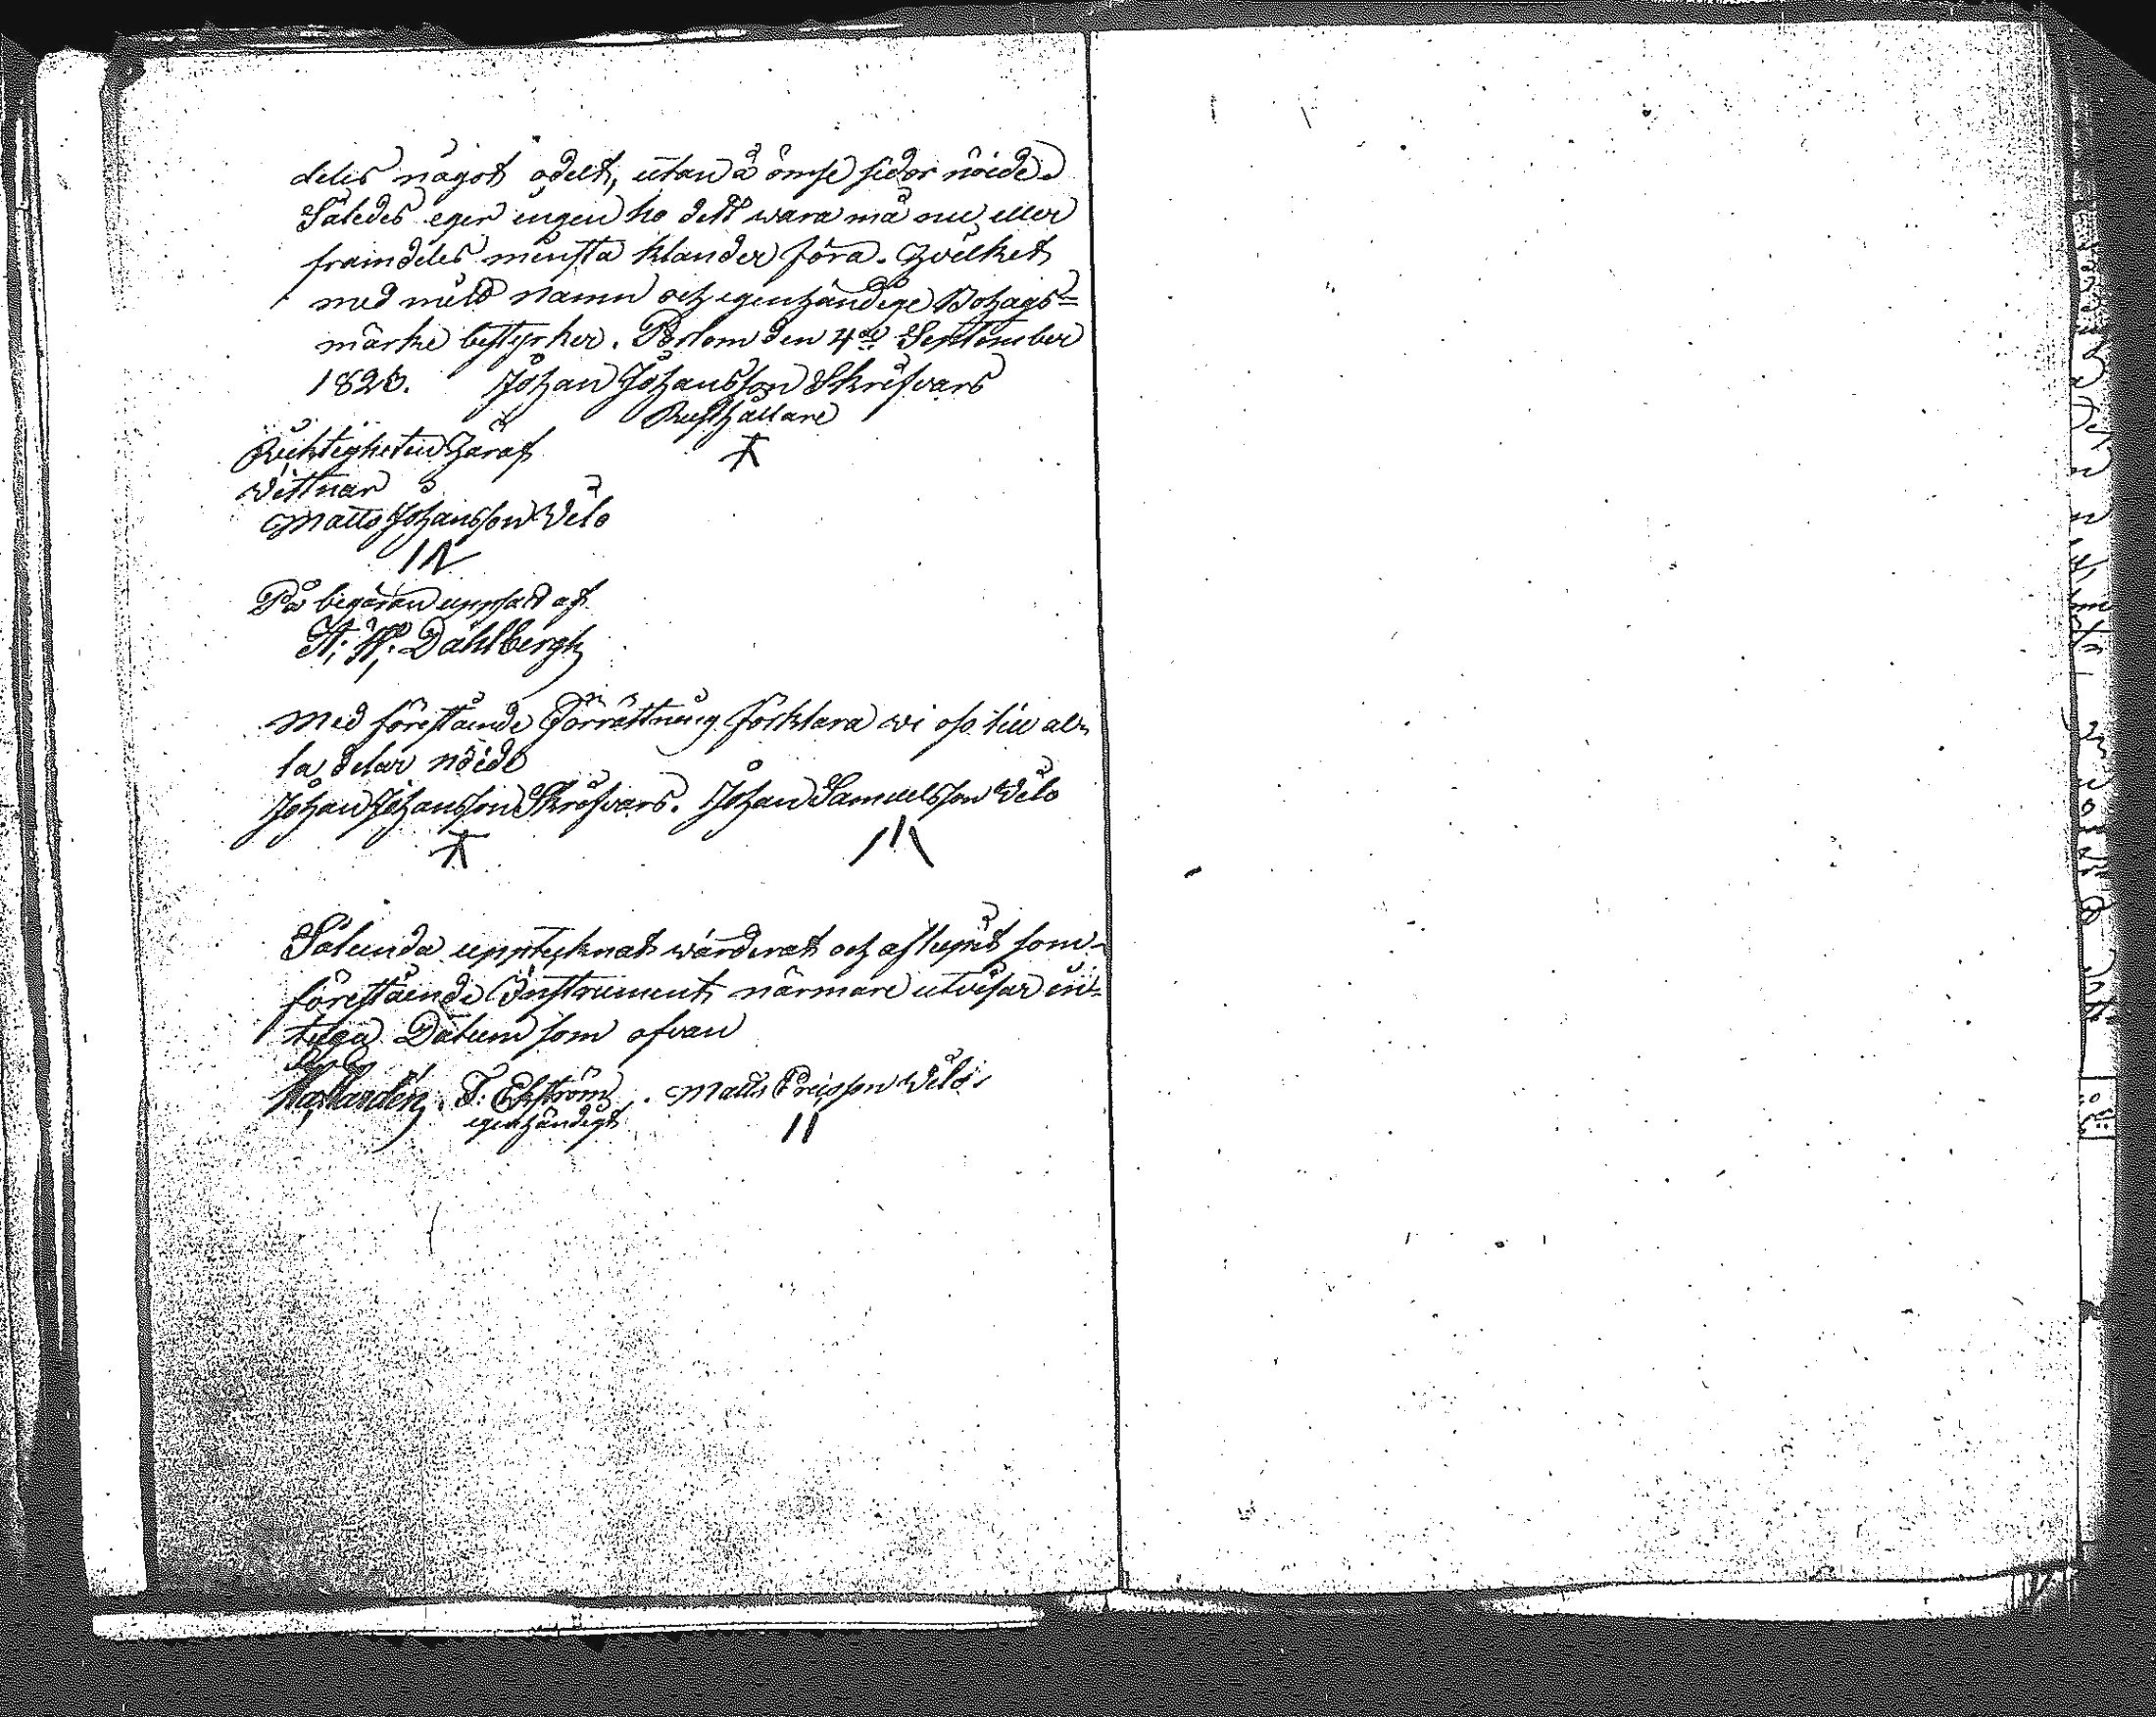 deles något odelt, utan å ömse sidor nöide.
Således eger ingen ho dett wara må nu eller
framdeles minsta klander föra. Hvilket
med mitt namn och egenhändige Bohags=
märke bestyrker. den 4de September
Johan Johansson Skräfvars
Rusthållare
Ricktigheten häraf
Wittnar
Matts Johansson Wilo
På begäran uppsatt af
Dahlbergh
Med förestående Förrättning förklara wi oss till al-
la delar nöide
Johan Johansson Skräfvars. Johan Samuelsson Wilo
Sålunda upptecknat wärderat och aflupit som
förestående Instrument närmare utvisar in-
tyga Datum som ofvan
Ekström. Matts Wilo
egenhändigt